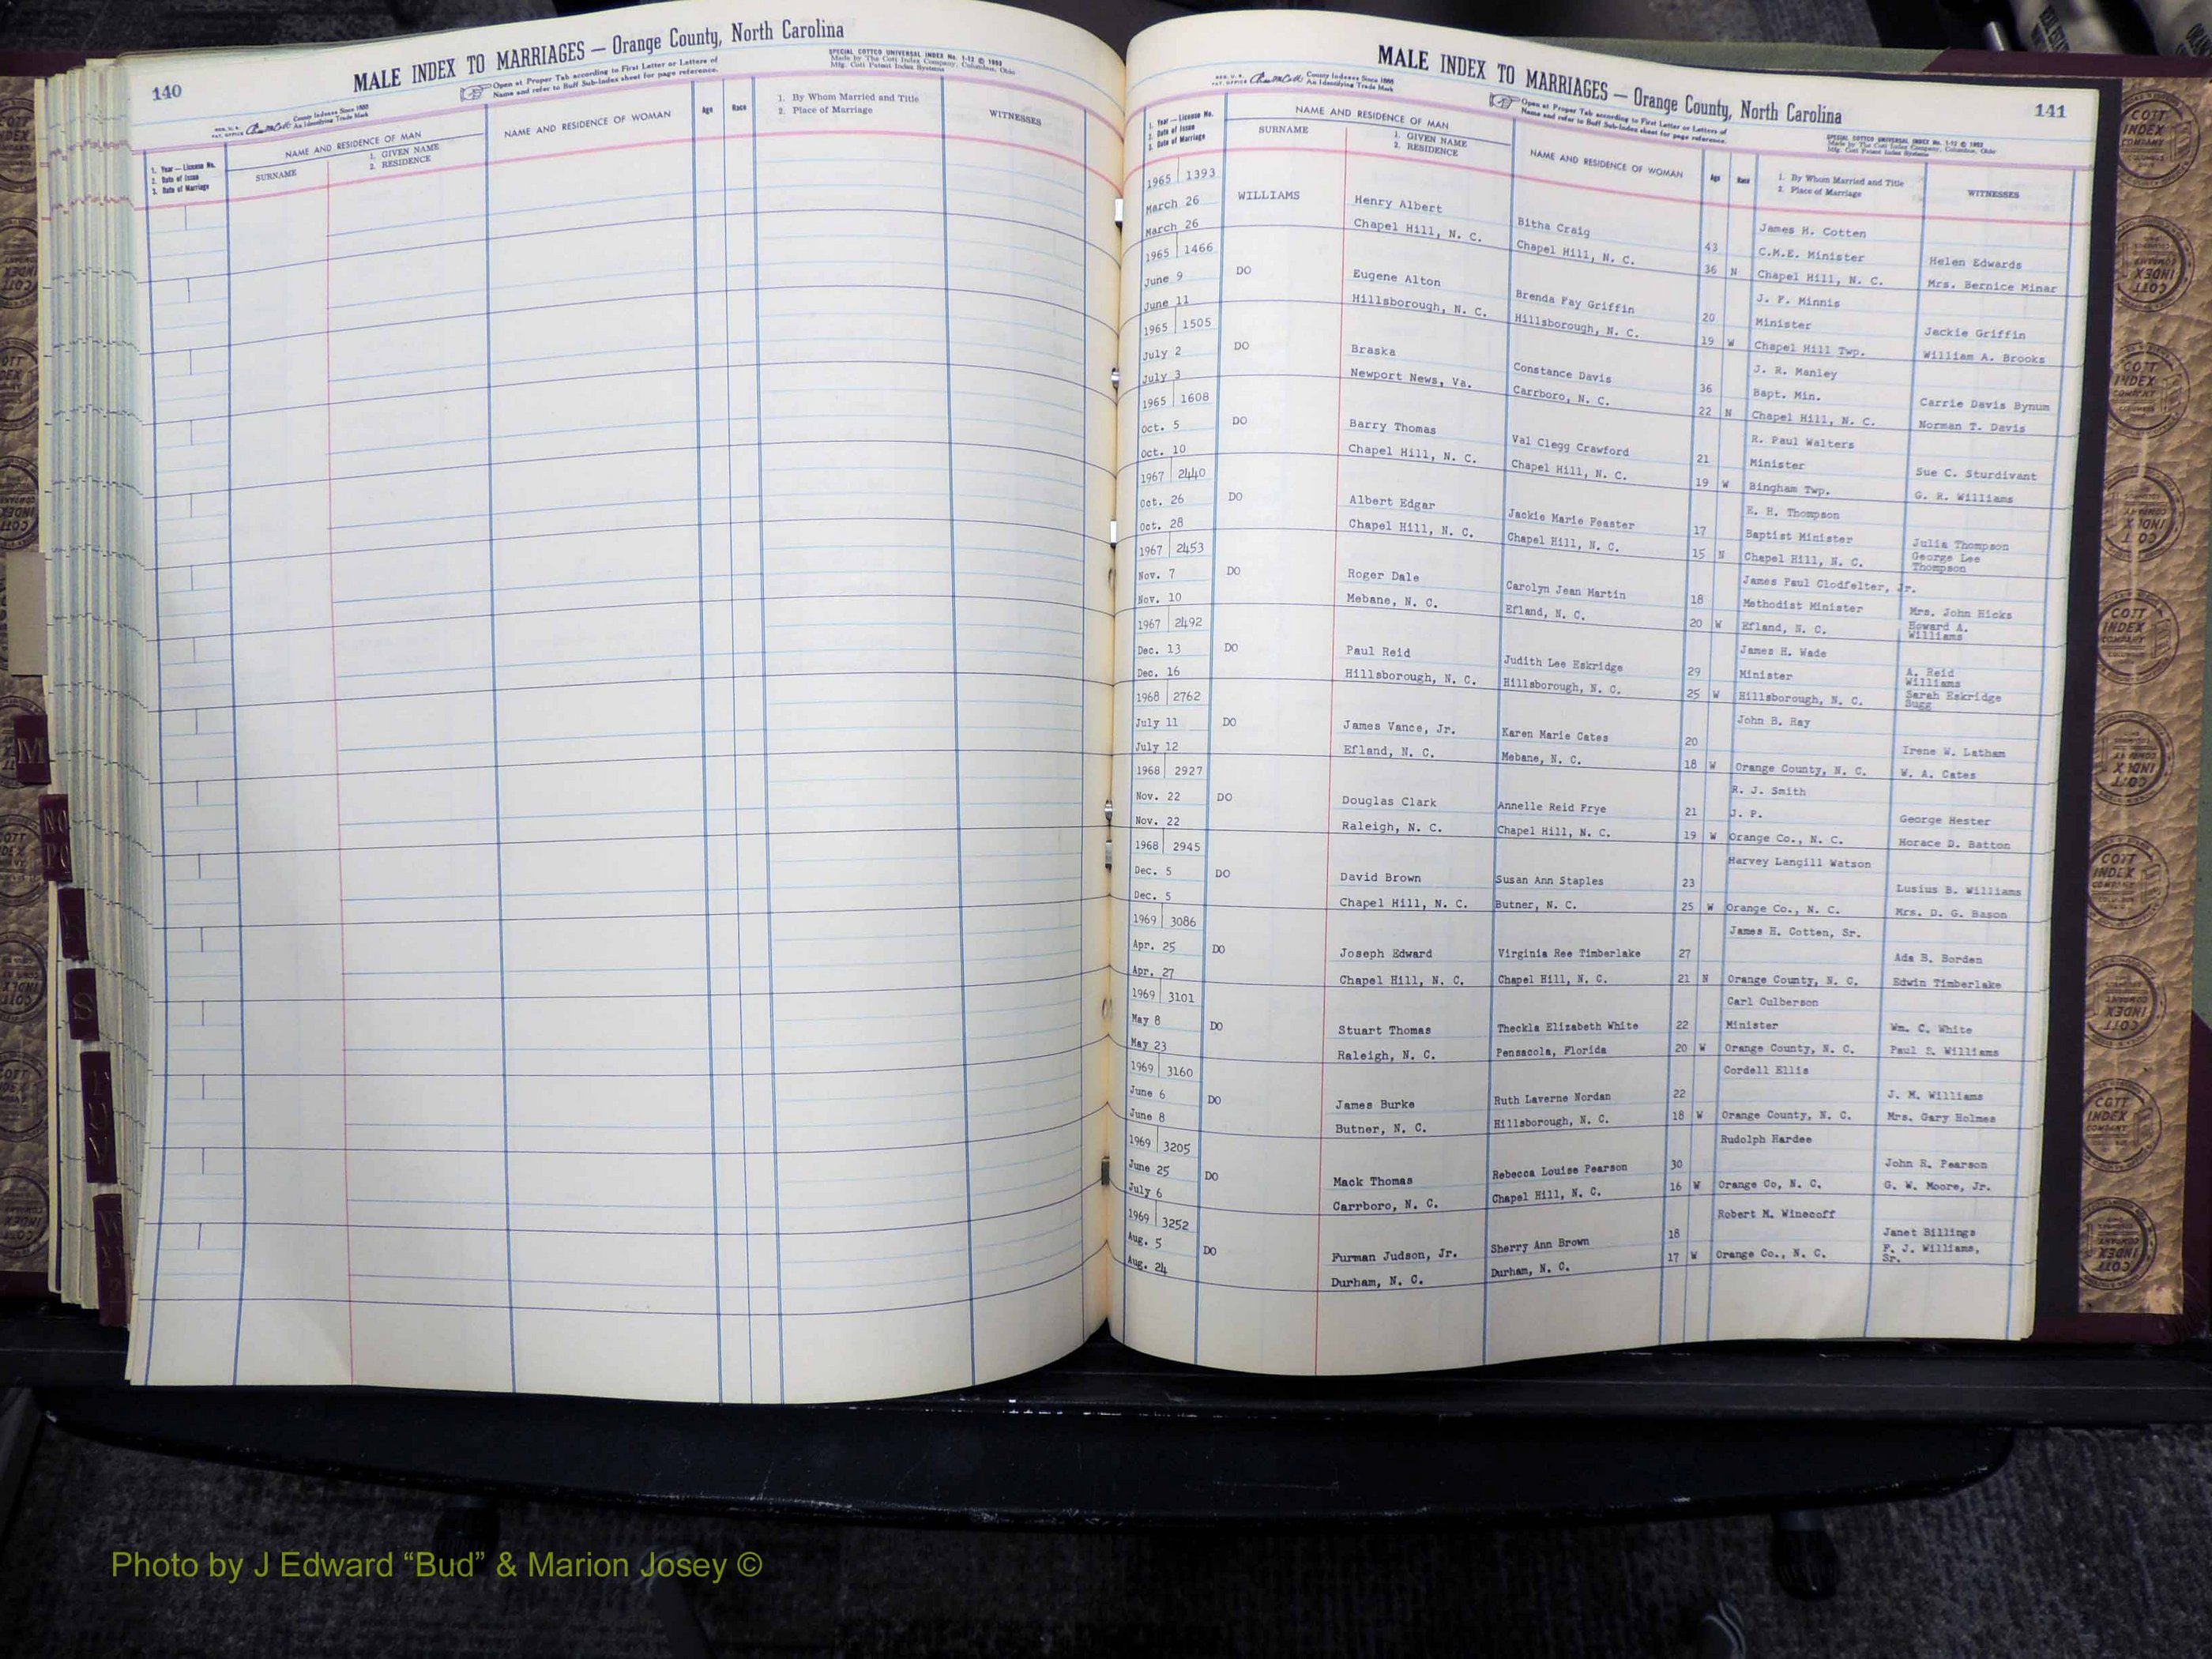 140
MALE INDEX TO MARRIAGES — Orange County, North Carolina
Open at Proper Tab according to First Letter or Letters of
Name and refer to Buff Sub-Index sheet for page reference.
SPECIAL COTTCO UNIVERSAL INDEX No. 1-12 © 1952
Made by The Cott Index Company, Columbus, Ohio
Mfg. Cott Patent Index Systems
County Indexes Since 1888
An Identifying Trade Mark
1. Year — License No.
2. Date of Issue
3. Date of Marriage
NAME AND RESIDENCE OF MAN
SURNAME
1. GIVEN NAME
2. RESIDENCE
NAME AND RESIDENCE OF WOMAN
Age
Race
1. By Whom Married and Title
2. Place of Marriage
WITNESSES
MALE INDEX TO MARRIAGES — Orange County, North Carolina
141
County Indexes Since 1888
An Identifying Trade Mark
Open at Proper Tab according to First Letter or Letters of
Name and refer to Buff Sub-Index sheet for page reference.
SPECIAL COTTCO UNIVERSAL INDEX No. 1-12 © 1952
Made by The Cott Index Company, Columbus, Ohio
Mfg. Cott Patent Index Systems
1. Year — License No.
2. Date of Issue
3. Date of Marriage
NAME AND RESIDENCE OF MAN
SURNAME
1. GIVEN NAME
2. RESIDENCE
NAME AND RESIDENCE OF WOMAN
Age
Race
1. By Whom Married and Title
2. Place of Marriage
WITNESSES
1965 1393 James H. Cotten
March 26 WILLIAMS Henry Albert Bitha Craig 43 C.M.E. Minister Helen Edwards
March 26 Chapel Hill, N. C. Chapel Hill, N. C. 36 N Chapel Hill, N. C. Mrs. Bernice Minar
1965 1466 J. F. Minnis
June 9 DO Eugene Alton Brenda Fay Griffin 20 Minister Jackie Griffin
June 11 Hillsborough, N. C. Hillsborough, N. C. 19 W Chapel Hill Twp. William A. Brooks
1965 1505 J. R. Manley
July 2 DO Braska Constance Davis 36 Bapt. Min. Carrie Davis Bynum
July 3 Newport News, Va. Carrboro, N. C. 22 N Chapel Hill, N. C. Norman T. Davis
1965 1608 R. Paul Walters
Oct. 5 DO Barry Thomas Val Clegg Crawford 21 Minister Sue C. Sturdivant
Oct. 10 Chapel Hill, N. C. Chapel Hill, N. C. 19 W Bingham Twp. G. R. Williams
1967 2440 E. H. Thompson
Oct. 26 DO Albert Edgar Jackie Marie Feaster 17 Baptist Minister Julia Thompson
Oct. 28 Chapel Hill, N. C. Chapel Hill, N. C. 15 N Chapel Hill, N. C. George Lee
Thompson
1967 2453 James Paul Clodfelter, Jr.
Nov. 7 DO Roger Dale Carolyn Jean Martin 18 Methodist Minister Mrs. John Hicks
Nov. 10 Mebane, N. C. Efland, N. C. 20 W Efland, N. C. Howard A.
Williams
1967 2492 James H. Wade
Dec. 13 DO Paul Reid Judith Lee Eskridge 29 Minister A. Reid
Williams
Dec. 16 Hillsborough, N. C. Hillsborough, N. C. 25 W Hillsborough, N. C. Sarah Eskridge
Sugg
1968 2762 John B. Ray
July 11 DO James Vance, Jr. Karen Marie Cates 20 Irene W. Latham
July 12 Efland, N. C. Mebane, N. C. 18 W Orange County, N. C. W. A. Cates
1968 2927 R. J. Smith
Nov. 22 DO Douglas Clark Annelle Reid Frye 21 J. P. George Hester
Nov. 22 Raleigh, N. C. Chapel Hill, N. C. 19 W Orange Co., N. C. Horace D. Batton
1968 2945 Harvey Langill Watson
Dec. 5 DO David Brown Susan Ann Staples 23 Lusius B. Williams
Dec. 5 Chapel Hill, N. C. Butner, N. C. 25 W Orange Co., N. C. Mrs. D. G. Bason
1969 3086 James H. Cotten, Sr.
Apr. 25 DO Joseph Edward Virginia Ree Timberlake 27 Ada B. Borden
Apr. 27 Chapel Hill, N. C. Chapel Hill, N. C. 21 N Orange County, N. C. Edwin Timberlake
1969 3101 Carl Culberson
May 8 DO Stuart Thomas Theckla Elizabeth White 22 Minister Wm. C. White
May 23 Raleigh, N. C. Pensacola, Florida 20 W Orange County, N. C. Paul S. Williams
1969 3160 Cordell Ellis
June 6 DO James Burke Ruth Laverne Nordan 22 J. M. Williams
June 8 Butner, N. C. Hillsborough, N. C. 18 W Orange County, N. C. Mrs. Gary Holmes
1969 3205 Rudolph Hardee
June 25 DO Mack Thomas Rebecca Louise Pearson 30 John R. Pearson
July 6 Carrboro, N. C. Chapel Hill, N. C. 16 W Orange Co, N. C. G. W. Moore, Jr.
1969 3252 Robert M. Winecoff
Aug. 5 DO Furman Judson, Jr. Sherry Ann Brown 18 Janet Billings
Aug. 24 Durham, N. C. Durham, N. C. 17 W Orange Co., N. C. F. J. Williams,
Sr.
M
S
COTT
INDEX
COMPANY
Photo by J Edward “Bud” & Marion Josey ©